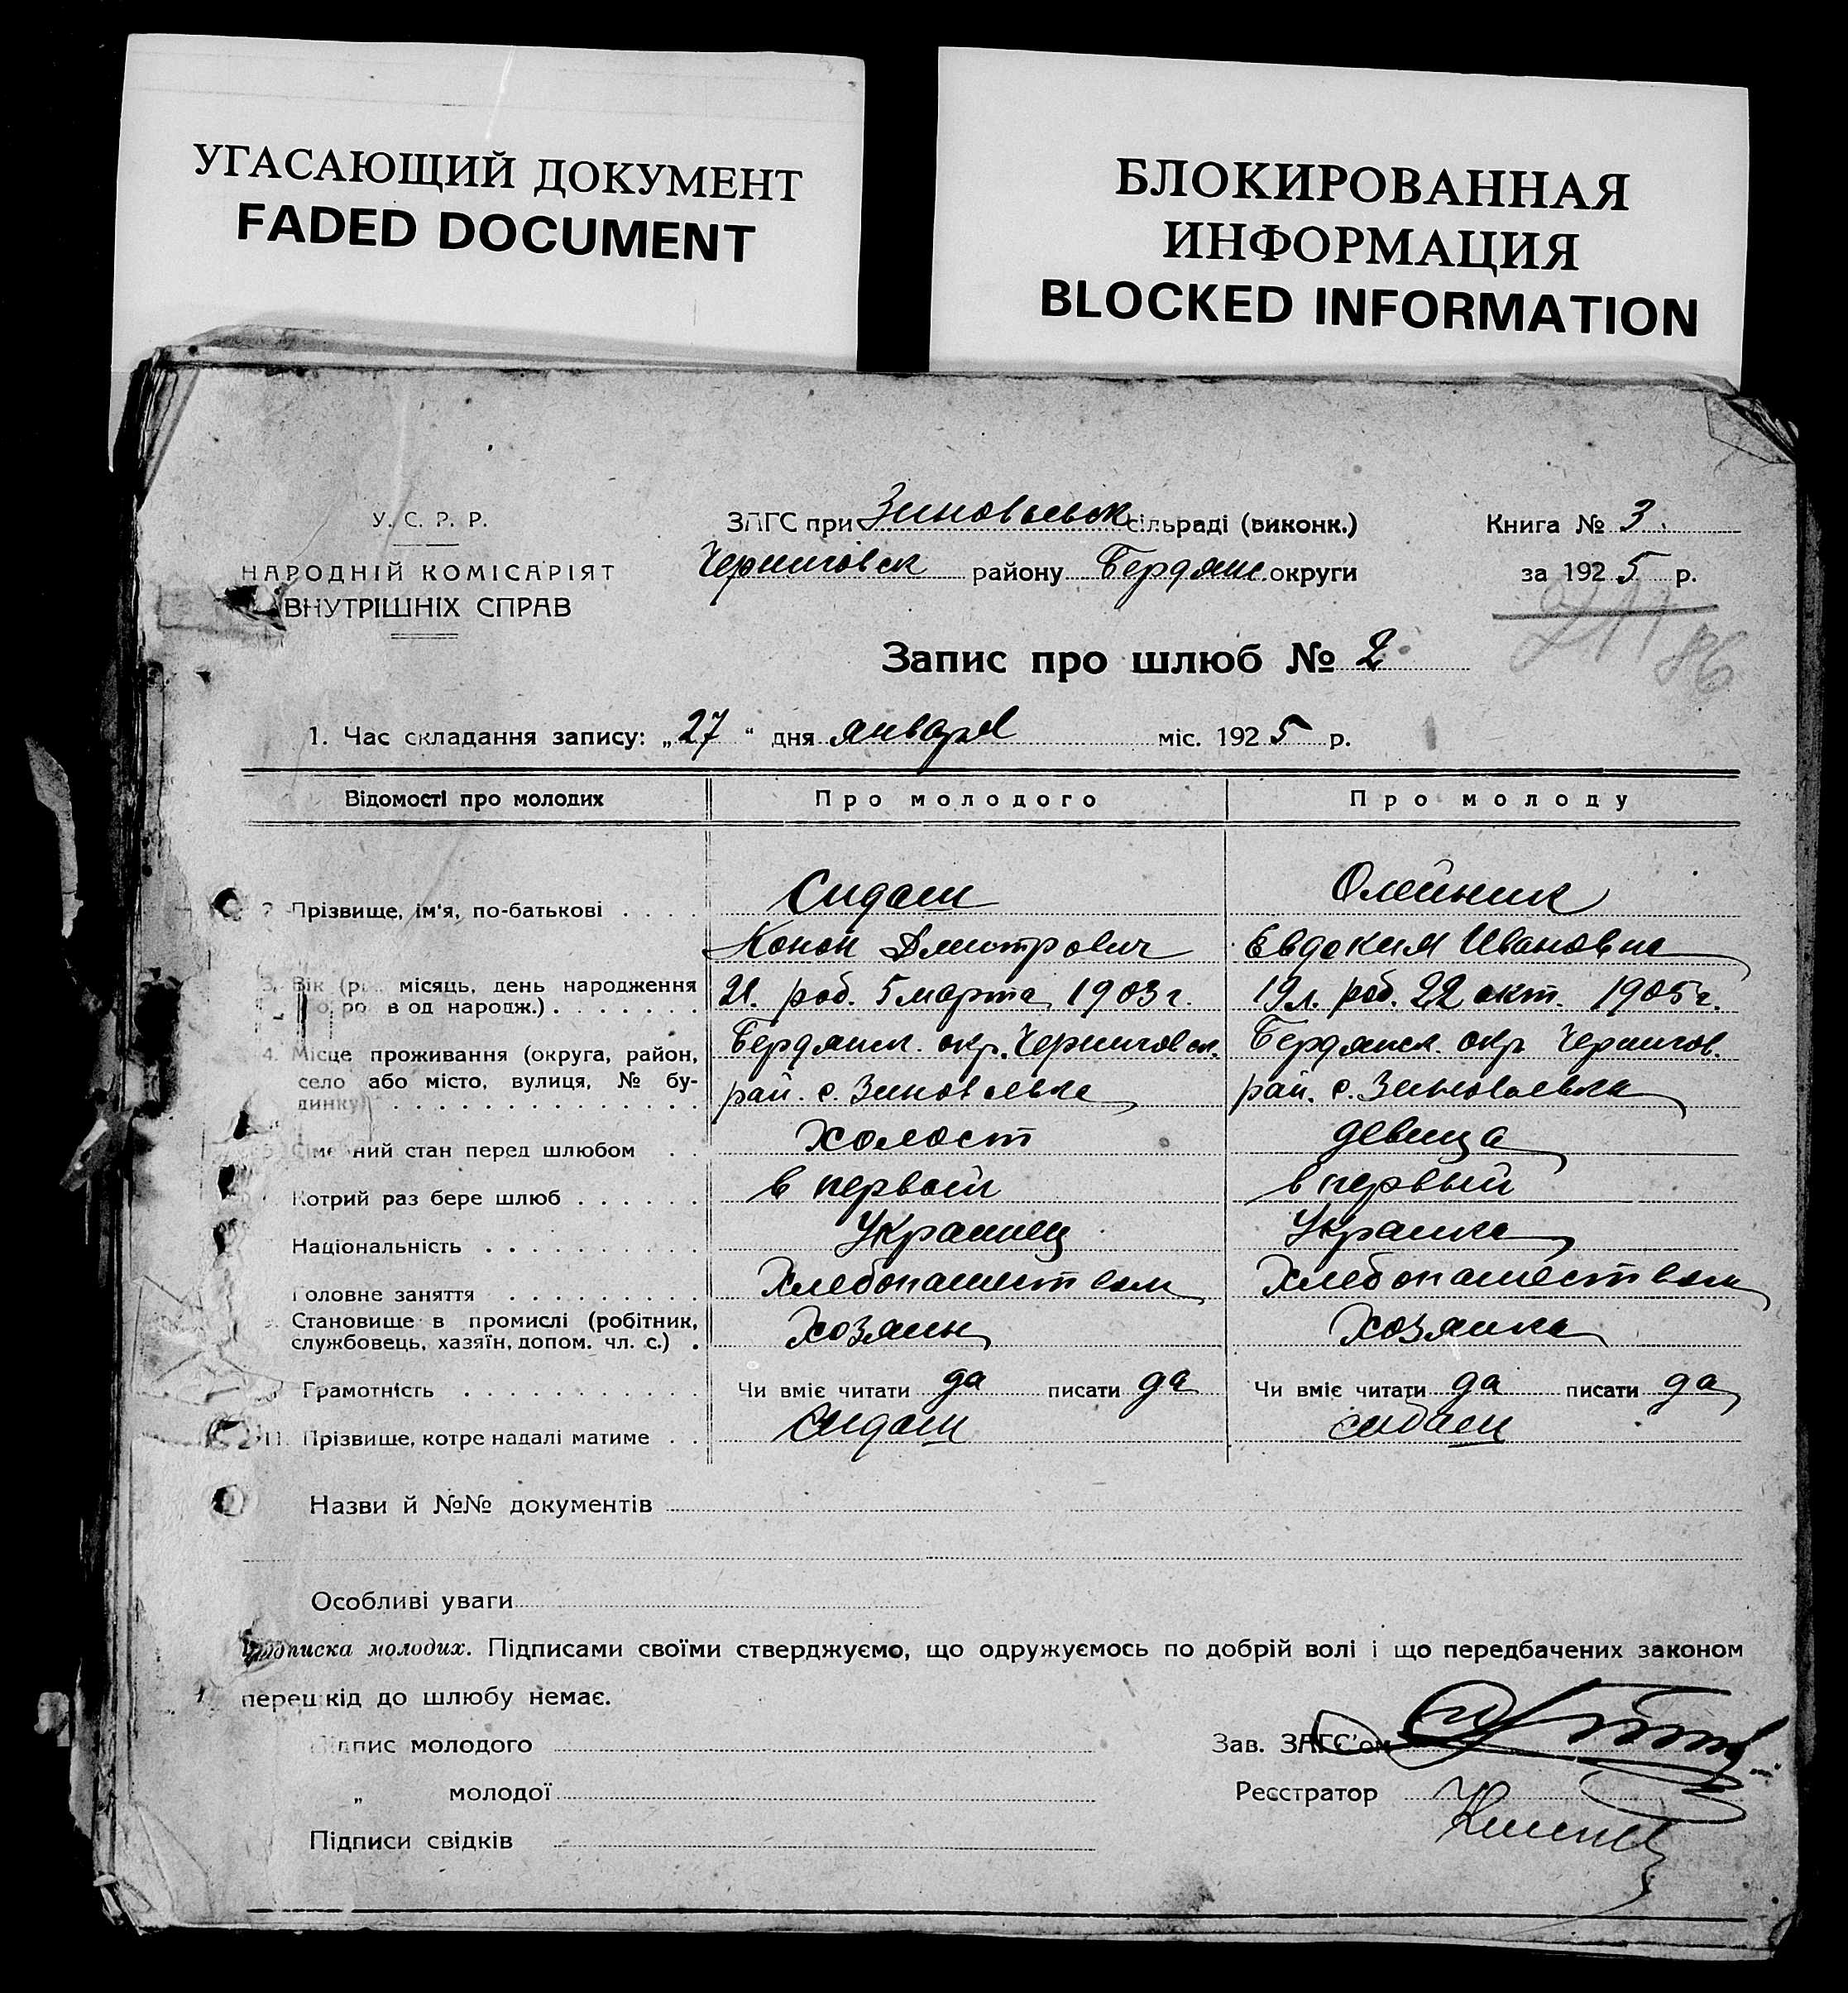 УГАСАЮЩИЙ ДОКУМЕНТ
FADED DOCUMENT
БЛОКИРОВАННАЯ
ИНФОРМАЦИЯ
BLOCKED INFORMATION
У. С. Р. Р.
НАРОДНІЙ КОМІСАРІЯТ
ВНУТРІШНІХ СПРАВ
ЗАГС при Зиновьевск сільраді (виконк.)
Черниговск району Бердянс. округи
Книга № 3.
за 1925 р.
Запис про шлюб № 2
86
1. Час складання запису: „27“ дня января міс. 1925 р.
Відомості про молодих Про молодого Про молоду
2. Прізвище, ім'я, по-батькові . . . . Сидаш Олейник
Конон Дмитрович Евдокия Ивановна
3. Вік (р місяць, день народження 21. род. 5 марта 1903 г. 19 л. род. 22 окт. 1905 г.
народж.) . . . . . . .
4. Місце проживання (округа, район, Бердянск. окр. Черниговск. Бердянск. окр Чернигов.
село або місто, вулиця, № бу- рай. с. Зиновьевка рай. с. Зиновьевка
динку) . . . . . . . . . . . . . .
ний стан перед шлюбом . . Холост девица
Котрий раз бере шлюб . . . . . . в первый в первый
Національність . . . . . . . . . . Украинец Украинка
Головне заняття . . . . . . . . . Хлебопашеством Хлебопашеством
9. Становище в промислі (робітник, Хозяин Хозяйка
службовець, хазяїн, допом. чл. с.) .
Грамотність . . . . . . . . . . . Чи вміє читати да писати да Чи вміє читати да писати да
11. Прізвище, котре надалі матиме . . Сидаш Сидаш
Назви й №№ документів
Особливі уваги
Підписка молодих. Підписами своїми стверджуємо, що одружуємось по добрій волі і що передбачених законом
перешкід до шлюбу немає.
Підпис молодого
„ молодої
Підписи свідків
Зав. ЗАГС'ом
Реєстратор